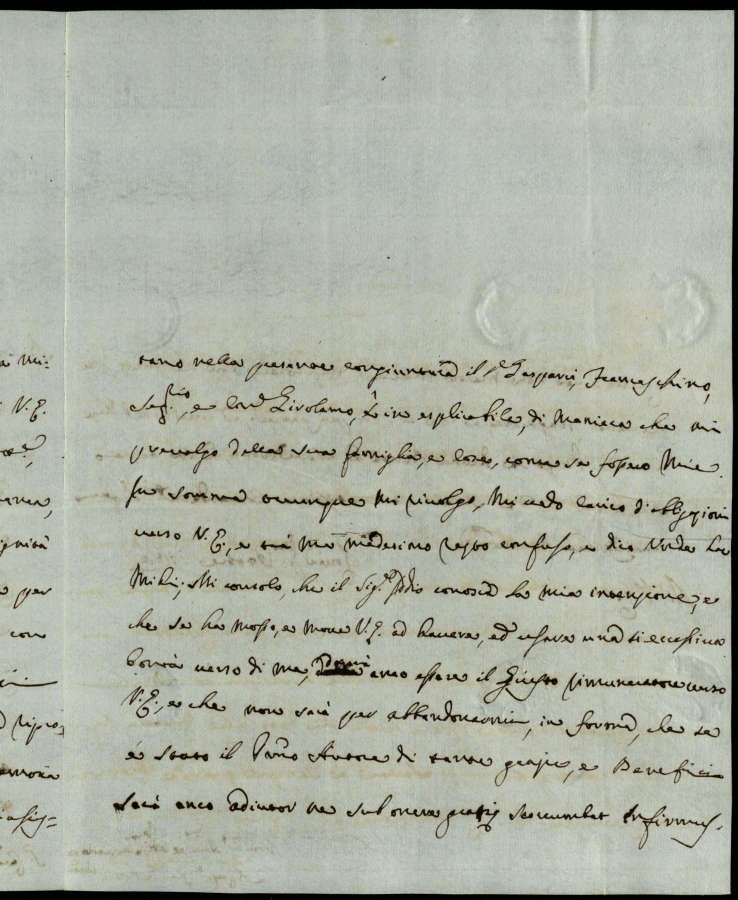 tano nella presente congiuntura il Sr. Gasparci, Franceschino,
Seg.rio, e Girolamo, è in esplicabile, di Maniera che mi
prevalgo della sua famiglia, e loro, come se fossero Mie.
In somma ovunque Mi rivolgo, Mi vedo carico d'obbligazioni
verso V.E., e trà me medesimo resto confuso, e dico Unde hoc
Mihi; Mi consolo, che il Sig.re Iddio conosca la mia intenzione, e
che se ha Mosso, e move V.E. ad havere, ed usare una sì eccessiva
bontà verso di me, dovrà anco essere il Giusto rimuneratore verso
V.E., e che non sarà per abbandonarmi, in forma, che se
è stato il Primo Autore di tante grazie, e Beneficii
sarà anco adiutor ne sub onere gratiis succumbat Infirmus.
à Mi=
V.E.
per
con